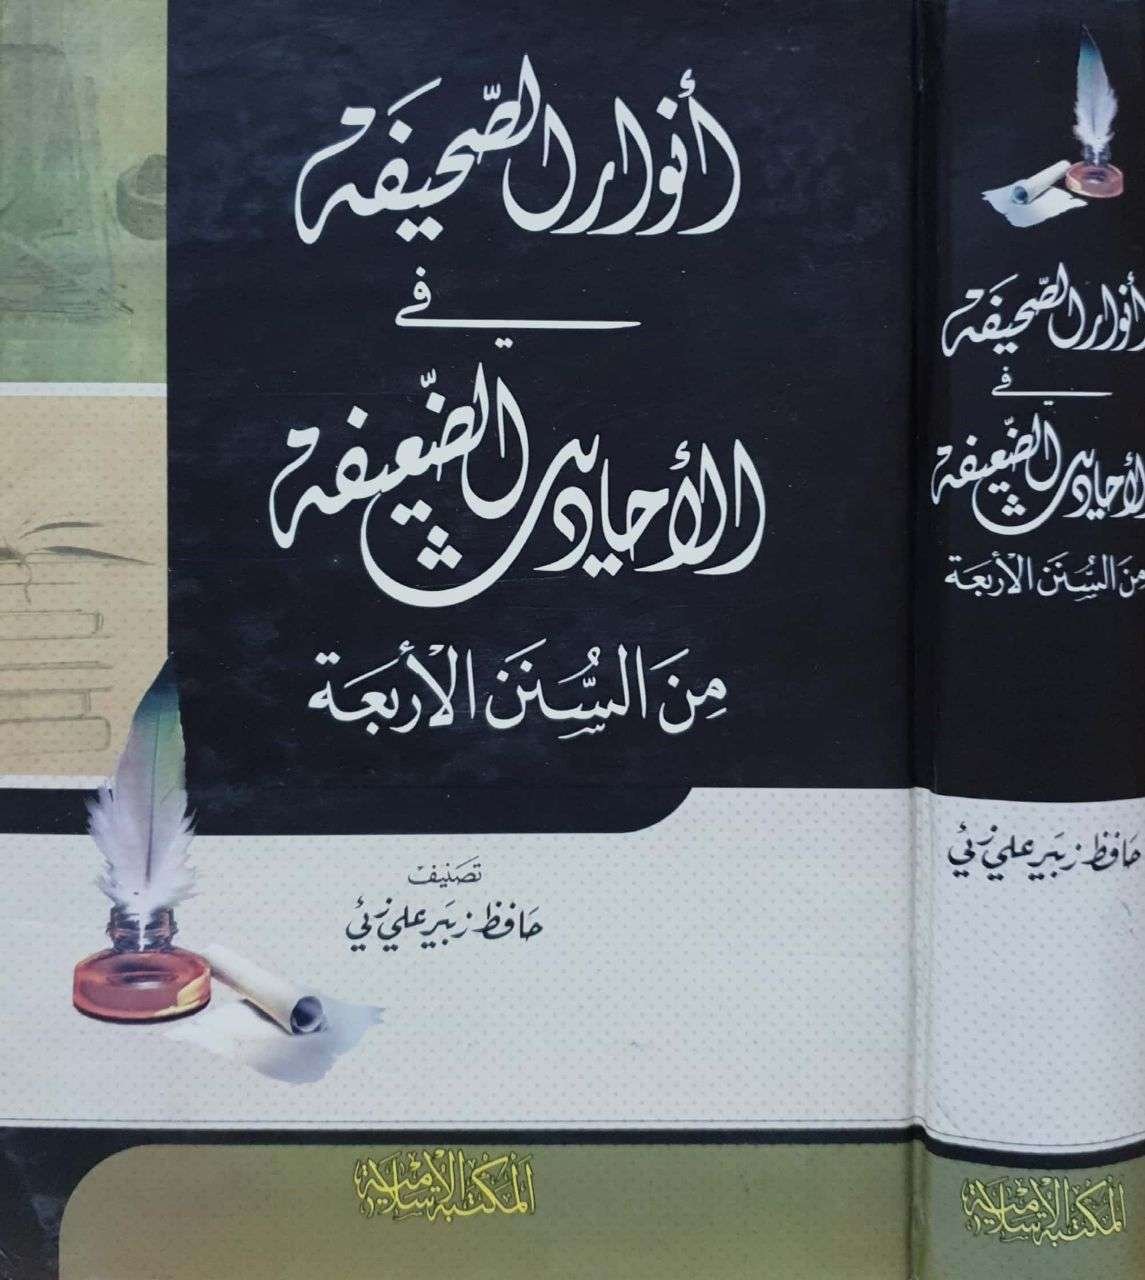 أنوار الصّحيفَة
في
الأحاديث الضّعيفة
مِنَ السُّنَن الأربَعَة
تصَنيف
حَافظ زبَير علي زئي
المكتبة الإسلامية
أنوار الصّحيفَة
في
الأحاديث الضّعيفة
مِنَ السُّنَن الأربعَة
حَافظ زبَير علي زئي
المكتبة الإسلامية